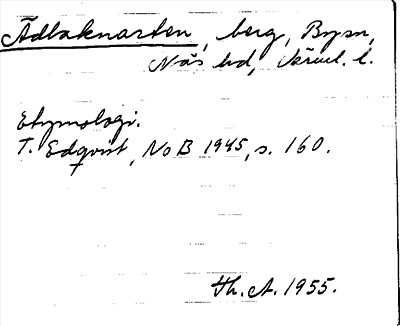 Ädbaknarten, berg, Bysn,
Näs hd, Värml. l.
Etymologi.
T. Edqvist, NoB 1945, s. 160.
Th. A. 1955.